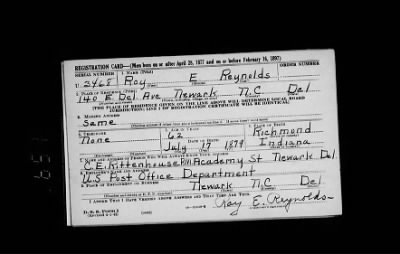 REGISTRATION CARD—(Men born on or after April 28, 1877 and on or before February 16, 1897)
SERIAL NUMBER 1. NAME (Print) ORDER NUMBER
U 3468 Roy E Reynolds
2. PLACE OF RESIDENCE (Print)
140 E. Del Ave Newark N.C Del
(THE PLACE OF RESIDENCE GIVEN ON THE LINE ABOVE WILL DETERMINE LOCAL BOARD
JURISDICTION; LINE 2 OF REGISTRATION CERTIFICATE WILL BE IDENTICAL)
3. MAILING ADDRESS
Same
4. TELEPHONE 5. AGE IN YEARS 6. PLACE OF BIRTH
None 62 Richmond
DATE OF BIRTH
July 17 1879 Indiana
7. NAME AND ADDRESS OF PERSON WHO WILL ALWAYS KNOW YOUR ADDRESS
C.E. Rittenhouse Academy St Newark Del
8. EMPLOYER'S NAME AND ADDRESS
U.S Post Office Department
9. PLACE OF EMPLOYMENT OR BUSINESS
Newark N.C Del
I AFFIRM THAT I HAVE VERIFIED ABOVE ANSWERS AND THAT THEY ARE TRUE.
D. S. S. Form 1
Roy E. Reynolds